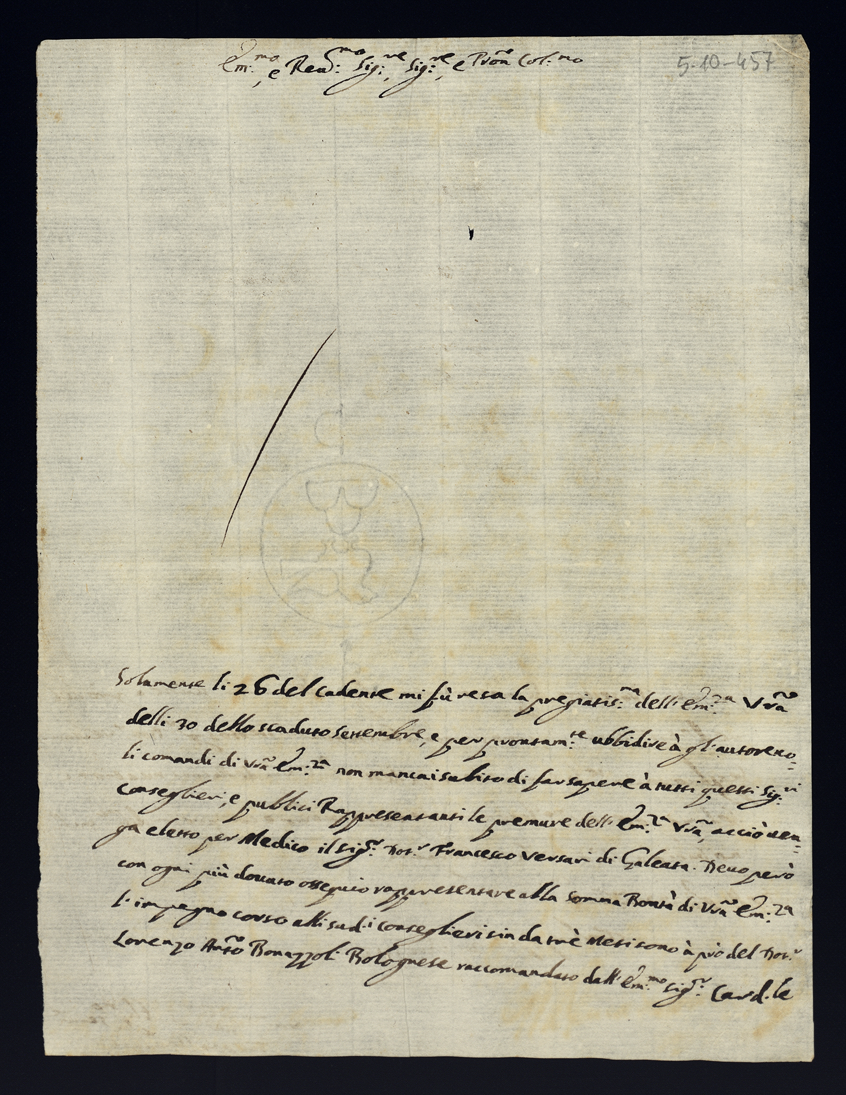 Em:mo, e Rev:mo Sig:re, Sig:re, e Pron Col:mo
5-10-457
Solamente li 26 del cadente mi fù resa la pregiatis:ma dell'Em:za Vrã
delli 30 dello scaduto Settembre, e per prontam:te ubbidire à gl'autorevo=
li comandi di Vrã Em:za non mancai subito di far sapere à tutti questi Sig:ri
Conseglieri, e publici Rappresentanti le premure dell'Em:za Vrã, acciò ven=
ga eletto per Medico il Sig:r Dot:r Francesco Versari di Galeata. Devo però
con ogni più dovuto ossequio rappresentare alla Somma Bontà di Vrã Em:za
l'impegno corso alli sud:i Conseglieri sin da trè Mesi sono à prò del Dot:r
Lorenzo Anto Bonazzoli Bolognese raccomandato dall'Em:mo Sig:r Card.le